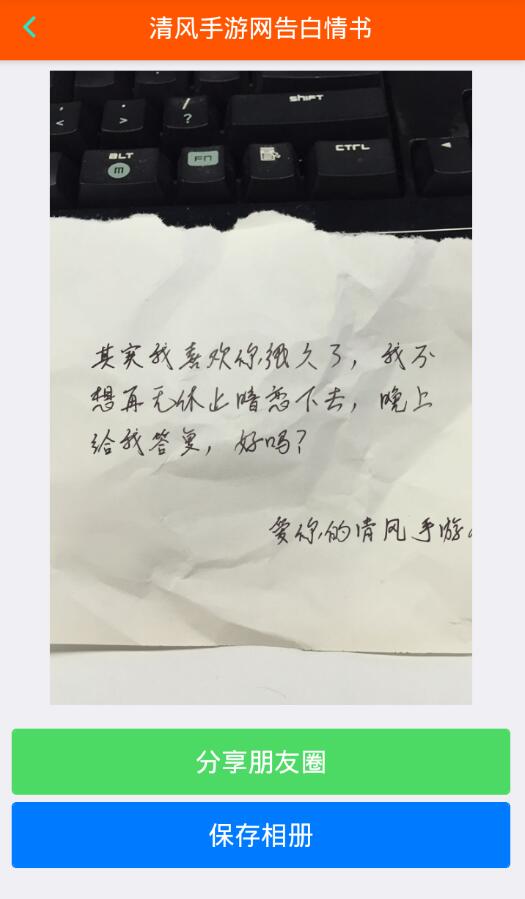 清风手游网告白情书
< > / ?
SHIFT
ALT FN CTRL
M
其实我喜欢你很久了，我不
想再无休止暗恋下去，晚上
给我答复，好吗？
爱你的清风手游
分享朋友圈
保存相册